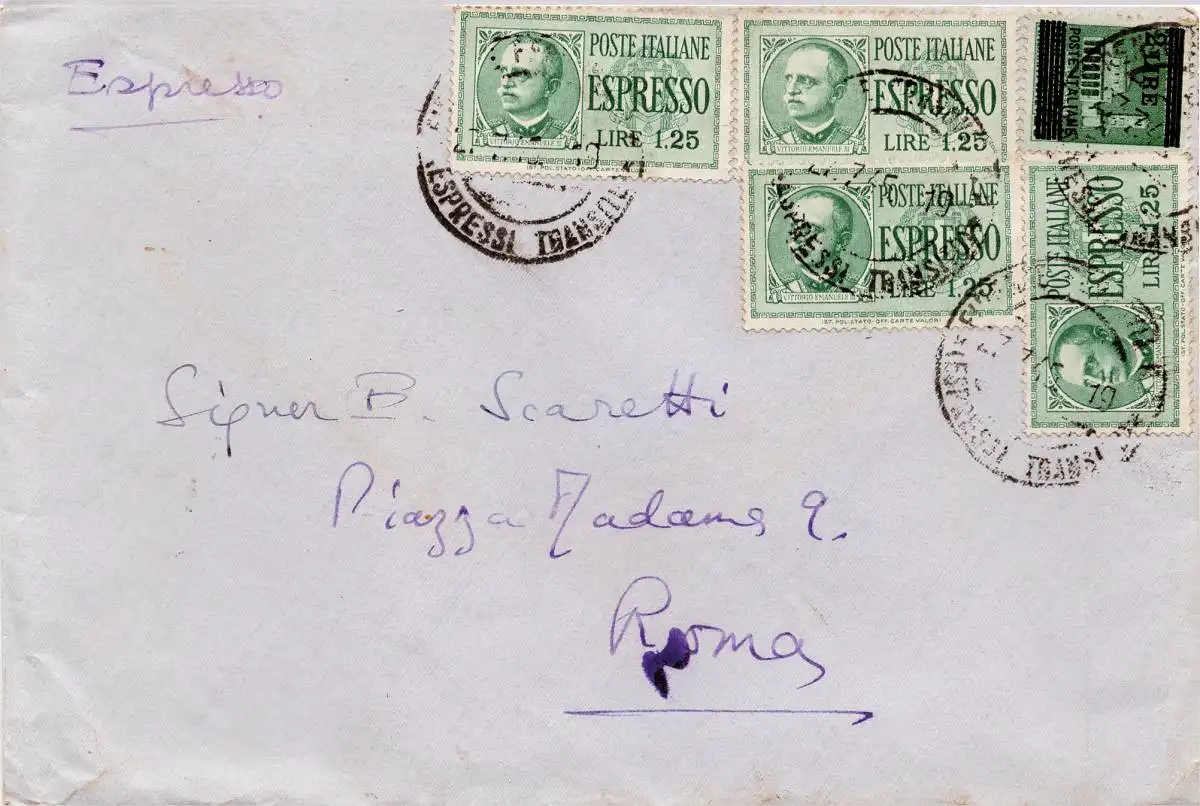 Espresso
POSTE ITALIANE
ESPRESSO
LIRE 1.25
VITTORIO EMANUELE III
IST. POL. STATO - OFF. CARTE VALORI
POSTE ITALIANE
ESPRESSO
LIRE 1.25
VITTORIO EMANUELE III
POSTE ITALIANE
ESPRESSO
LIRE 1.25
VITTORIO EMANUELE III
IST. POL. STATO - OFF. CARTE VALORI
LIRE
POSTE ITALIANE
POSTE ITALIANE
ESPRESSO
LIRE 1.25
ESPRESSI TRANSITI
ESPRESSI TRANSI
ESPRESSI TRANSI
Signor B. Scaretti
Piazza Madama 9.
Roma